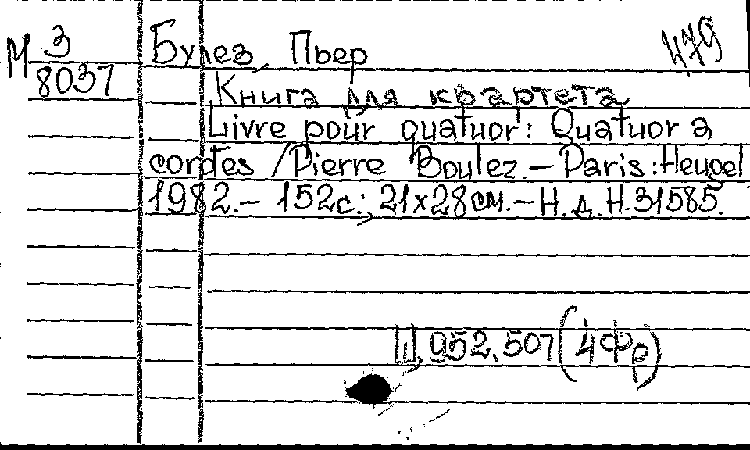 М 3 Булез, Пьер 479
8037 Книга для квартета
Livre pour quatuor: Quatuor a
cordes / Pierre Boulez.– Paris: Heugel
1982.– 152с.; 21x28см.– Н.д. H.31585.
Ш 952.507 (4Фр)